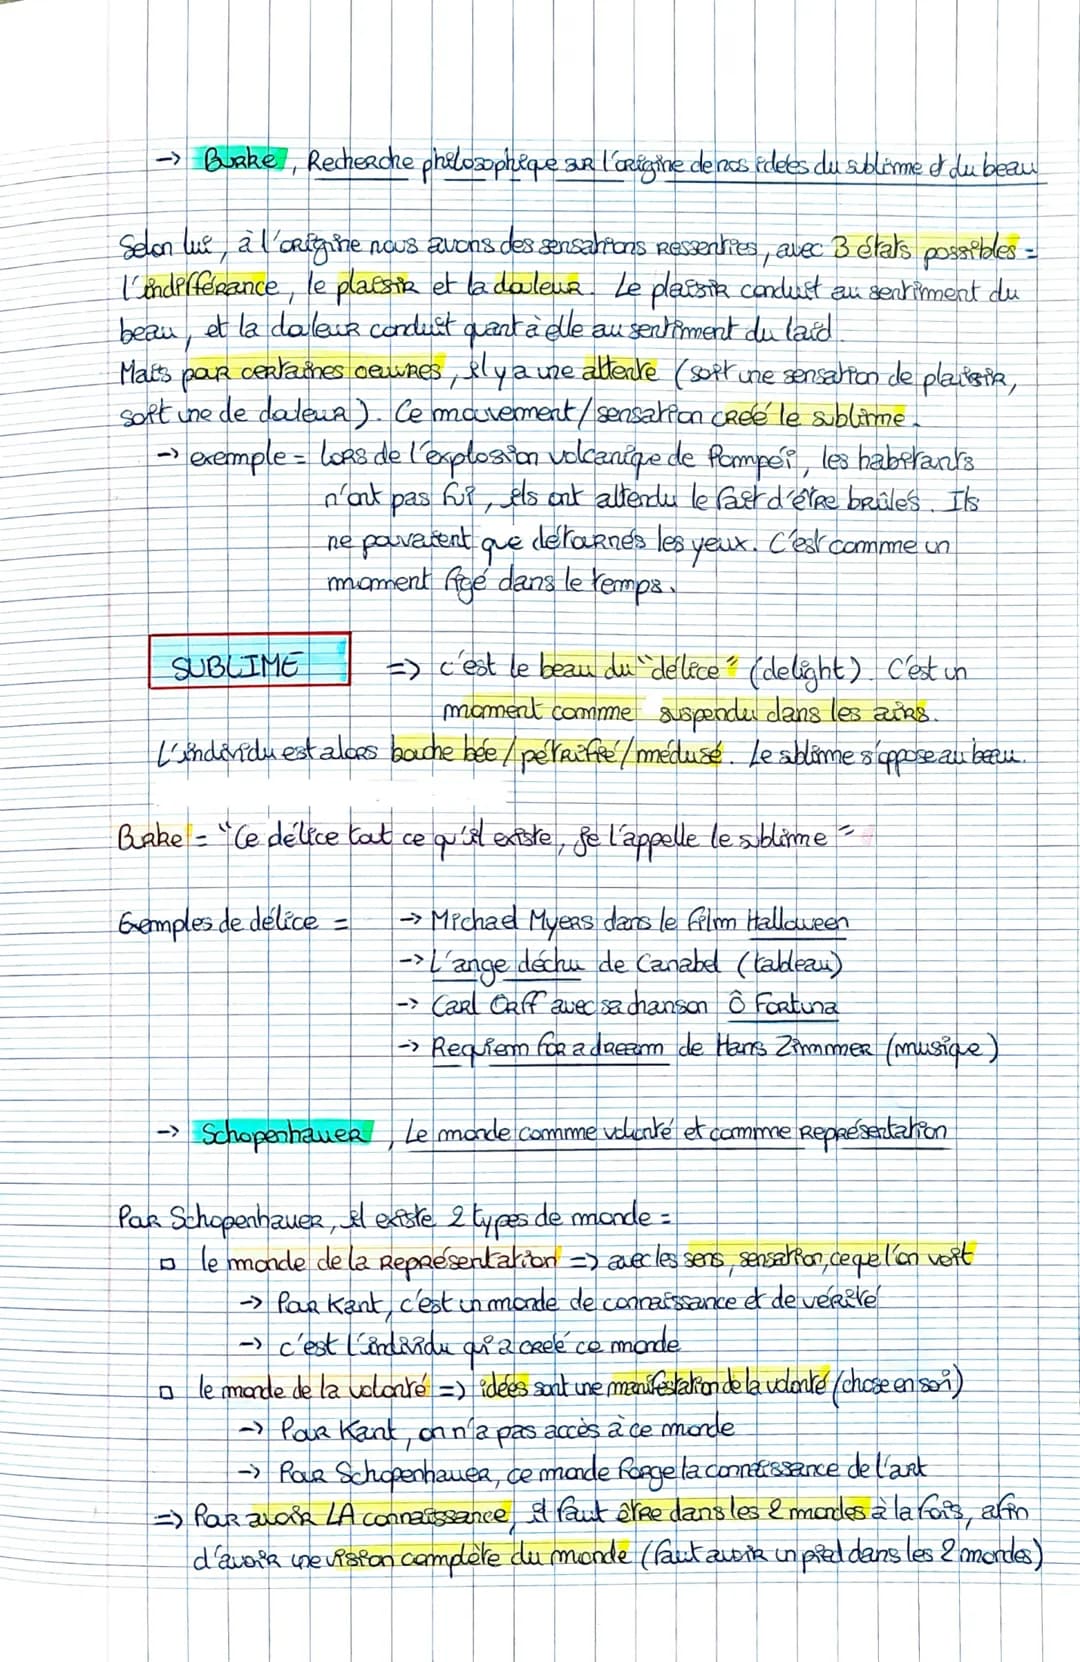 -> Burke, Recherche philosophique sur l'origine de nos idées du sublime et du beau
Selon lui, à l'origine nous avons des sensations ressenties, avec 3 états possibles =
l'indifférance, le plaisir et la douleur. Le plaisir conduit au sentiment du
beau, et la douleur conduit quant à elle au sentiment du laid.
Mais pour certaines oeuvres, il y a une attente (soit une sensation de plaisir,
soit une de douleur). Ce mouvement/sensation créé le sublime.
-> exemple = lors de l'explosion volcanique de Pompéi, les habitants
n'ont pas fui, ils ont attendu le fait d'être brûlés. Ils
ne pouvaient que détournés les yeux. C'est comme un
moment figé dans le temps.
SUBLIME => c'est le beau du "délice" (delight). C'est un
moment comme suspendu dans les airs.
L'individu est alors bouche bée / pétrifié / médusé. Le sublime s'oppose au beau.
Burke = "Ce délice tout ce qu'il existe, je l'appelle le sublime"
Exemples de délice = -> Michael Myers dans le film Halloween
-> L'ange déchu de Canabel (tableau)
-> Carl Orff avec sa chanson Ô Fortuna
-> Requiem for a dream de Hans Zimmer (musique)
-> Schopenhauer, Le monde comme volonté et comme représentation
Pour Schopenhauer, il existe 2 types de monde =
□ le monde de la représentation => avec les sens, sensation, ce que l'on voit
-> Pour Kant, c'est un monde de connaissance et de vérité
-> c'est l'individu qui a créé ce monde
□ le monde de la volonté => idées sont une manifestation de la volonté (chose en soi)
-> Pour Kant, on n'a pas accès à ce monde
-> Pour Schopenhauer, ce monde forge la connaissance de l'art
=> Pour avoir LA connaissance, il faut être dans les 2 mondes à la fois, afin
d'avoir une vision complète du monde (faut avoir un pied dans les 2 mondes)